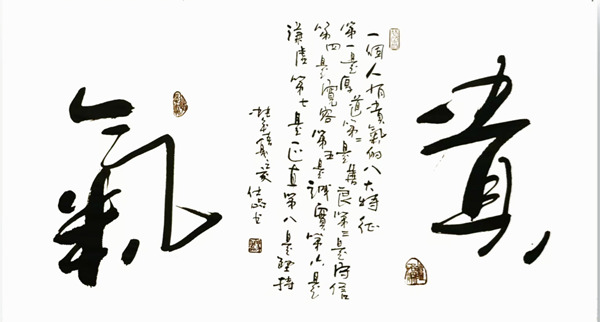 貴
一個人有貴氣的八大特征
第一是厚道第二是善良第三是守信
第四是寬容第五是誠實第六是
謙虛第七是正直第八是堅持
氣